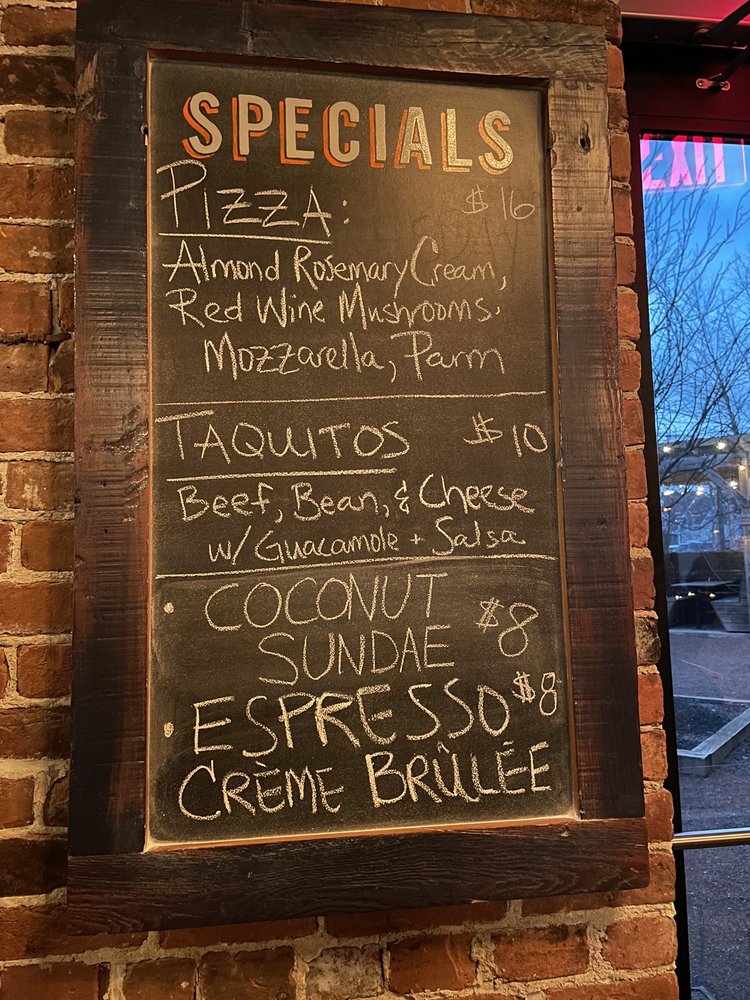 SPECIALS
PIZZA: $16
Almond Rosemary Cream,
Red Wine Mushrooms,
Mozzarella, Parm
TAQUITOS $10
Beef, Bean, & Cheese
w/ Guacamole + Salsa
• COCONUT $8
SUNDAE
• ESPRESSO $8
CRÈME BRÛLÉE
EXIT